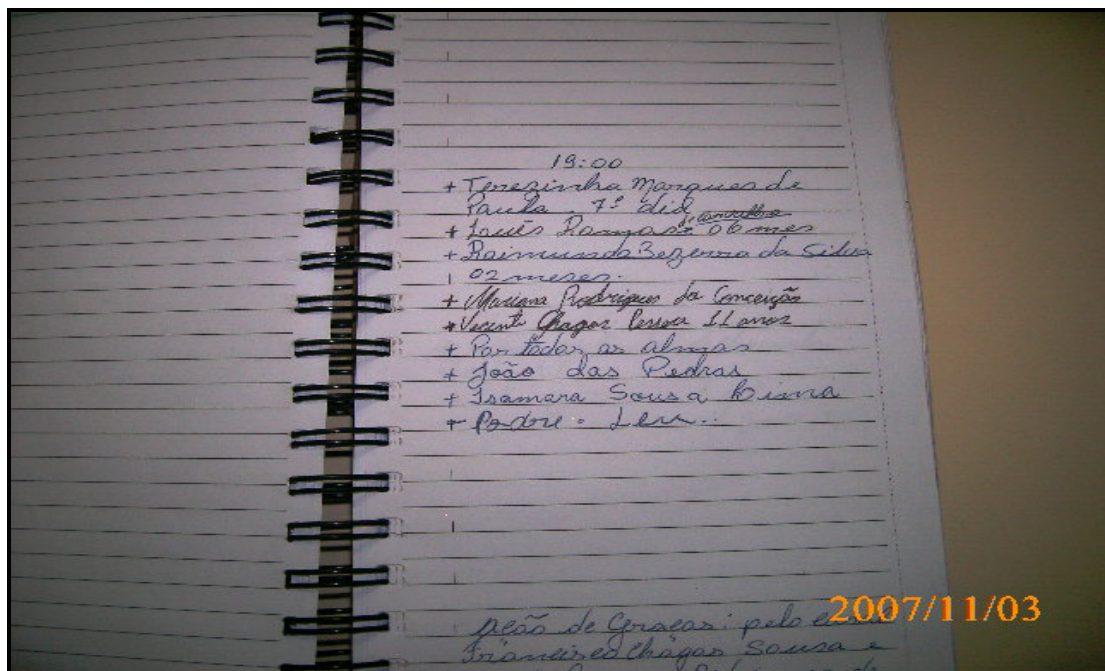 19:00
+ Terezinha Marques de
Paula 7º dia
+ Ramos de Carvalho 06 mes
+ Raimunda Bezerra da Silva
02 meses.
+ Mariana Rodrigues da Conceição
+ Vicente Chagas Pessoa 11 anos
+ Por todas as almas
+ João das Pedras
+ Isamara Sousa Lima
+ Padre.
Ação de Graças: pelo
Francisco Chagas Sousa e
2007/11/03